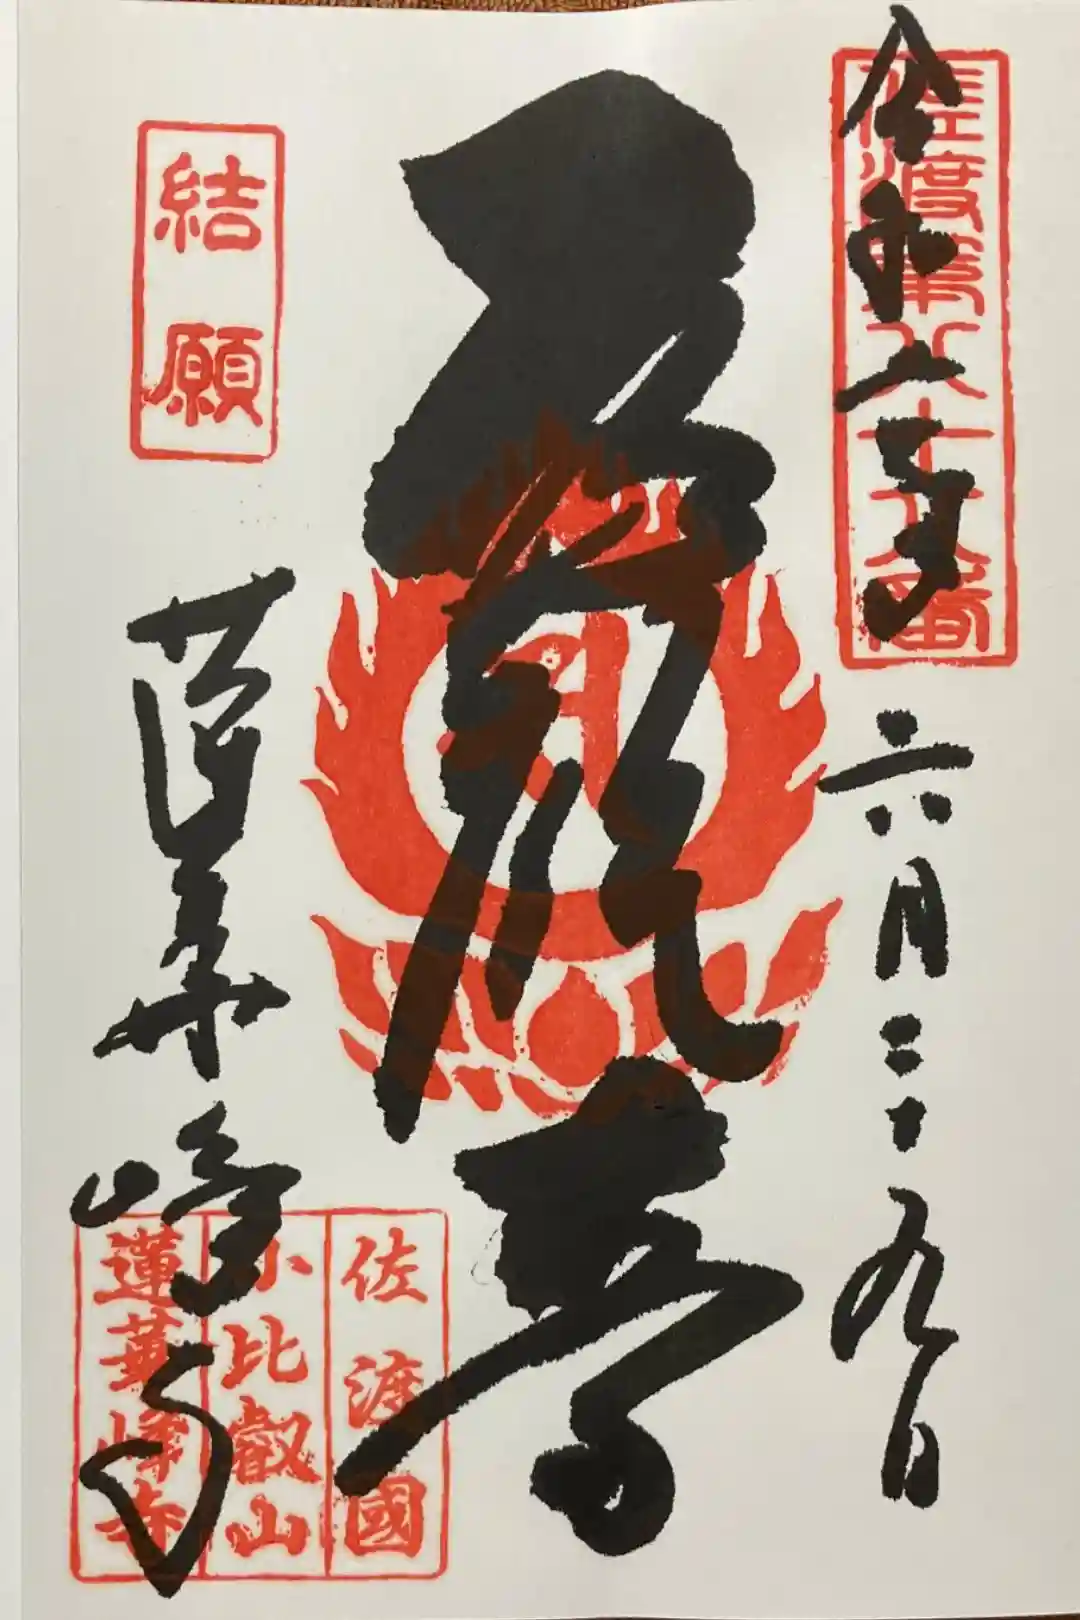 佐渡第八十八番
令和二年六月二十九日
結願
蓮華峰寺
佐渡國
小比叡山
蓮華峰寺